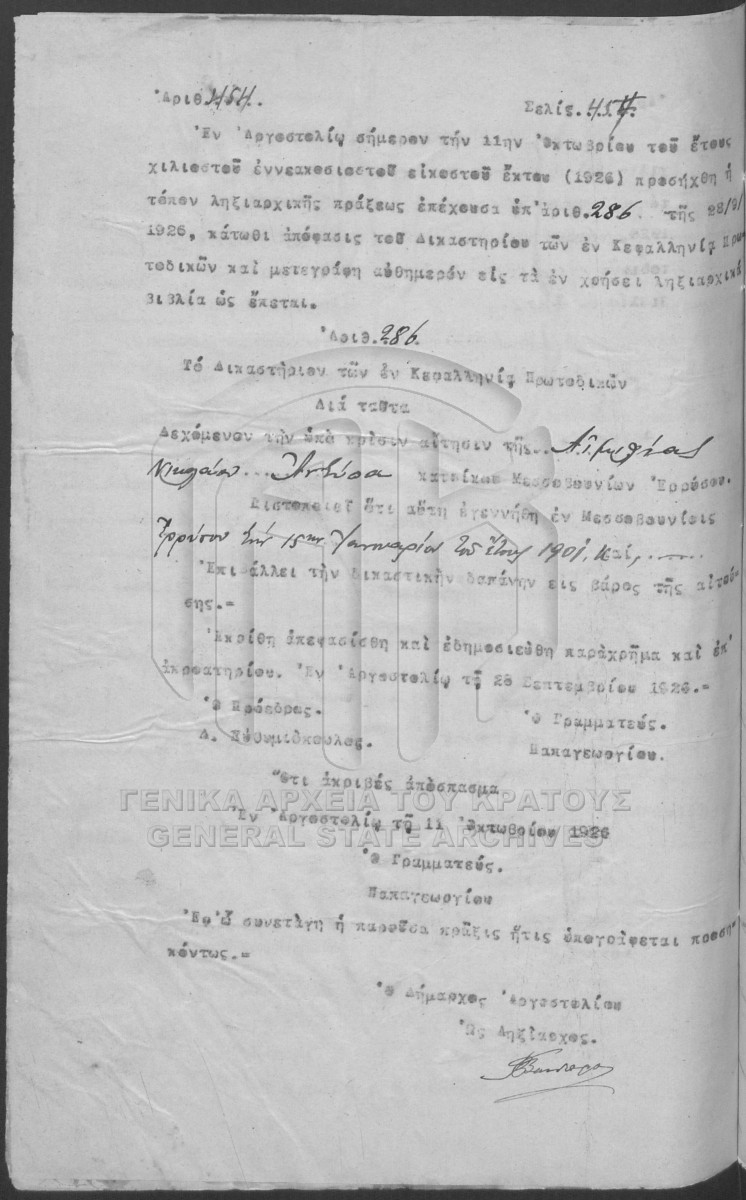 Ἀριθ. 454. Σελίς. 454.
Ἐν Ἀργοστολίῳ σήμερον τήν 11ην Ὀκτωβρίου τοῦ ἔτους
χιλιοστοῦ ἐννεακοσιοστοῦ εἰκοστοῦ ἕκτου (1926) προσήχθη ἡ
τόπον ληξιαρχικῆς πράξεως ἐπέχουσα ὑπ' ἀριθ. 286. τῆς 28/9/
1926, κάτωθι ἀπόφασις τοῦ Δικαστηρίου τῶν ἐν Κεφαλληνίᾳ Πρω-
τοδικῶν καί μετεγράφη αὐθημερόν εἰς τά ἐν χρήσει ληξιαρχικά
βιβλία ὡς ἕπεται.
Ἀριθ. 286.
Τό Δικαστήριον τῶν ἐν Κεφαλληνίᾳ Πρωτοδικῶν
Διά ταῦτα
Δεχόμενον τήν ὑπό κρίσιν αἴτησιν τῆς..
Νικολάου... κατοίκου Μεσσοβουνίων Ἐρρύσου.
Πιστοποιεῖ ὅτι αὕτη ἐγεννήθη ἐν Μεσσοβουνίοις
Ἐρρύσου τήν 15ην Ἰανουαρίου τοῦ ἔτους 1901, καί,
Ἐπιβάλλει τήν δικαστικήν δαπάνην εἰς βάρος τῆς αἰτού-
σης.=
Ἐκρίθη ἀπεφασίσθη καί ἐδημοσιεύθη παράχρῆμα καί ἐπ'
ἀκροατηρίου. Ἐν Ἀργοστολίῳ τῇ 28 Σεπτεμβρίου 1926.=
Ὁ Πρόεδρος. Ὁ Γραμματεύς.
Δ. Εὐθυμιόπουλος. Παπαγεωργίου.
Ὅτι ἀκριβές ἀπόσπασμα
ΓΕΝΙΚΑ ΑΡΧΕΙΑ ΤΟΥ ΚΡΑΤΟΥΣ
Ἐν Ἀργοστολίῳ τῇ 11 Ὀκτωβρίου 1926
GENERAL STATE ARCHIVES
Ὁ Γραμματεύς.
Παπαγεωργίου
Ἐφ' ᾧ συνετάγη ἡ παροῦσα πρᾶξις ἥτις ὑπογράφεται προση-
κόντως.=
Ὁ Δήμαρχος Ἀργοστολίου
Ὡς Ληξίαρχος.